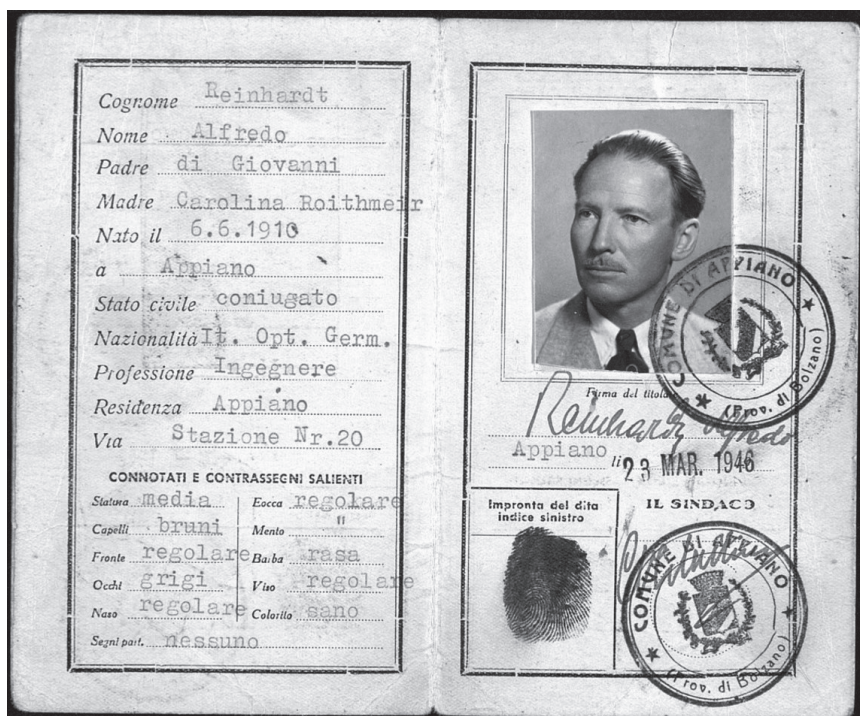 Cognome Reinhardt
Nome Alfredo
Padre di Giovanni
Madre Carolina Roithmeir
Nato il 6.6.1910
a Appiano
Stato civile coniugato
Nazionalità It. Opt. Germ.
Professione Ingegnere
Residenza Appiano
Via Stazione Nr.20
CONNOTATI E CONTRASSEGNI SALIENTI
Statura media
Capelli bruni
Fronte regolare
Occhi grigi
Naso regolare
Segni part. nessuno
Bocca regolare
Mento "
Barba rasa
Viso regolare
Colorito sano
COMUNE DI APPIANO
(Prov. di Bolzano)
Firma del titolare
Reinhardt Alfredo
Appiano li 23 MAR. 1946
Impronta del dita
indice sinistro
IL SINDACO
COMUNE DI APPIANO
(Prov. di Bolzano)